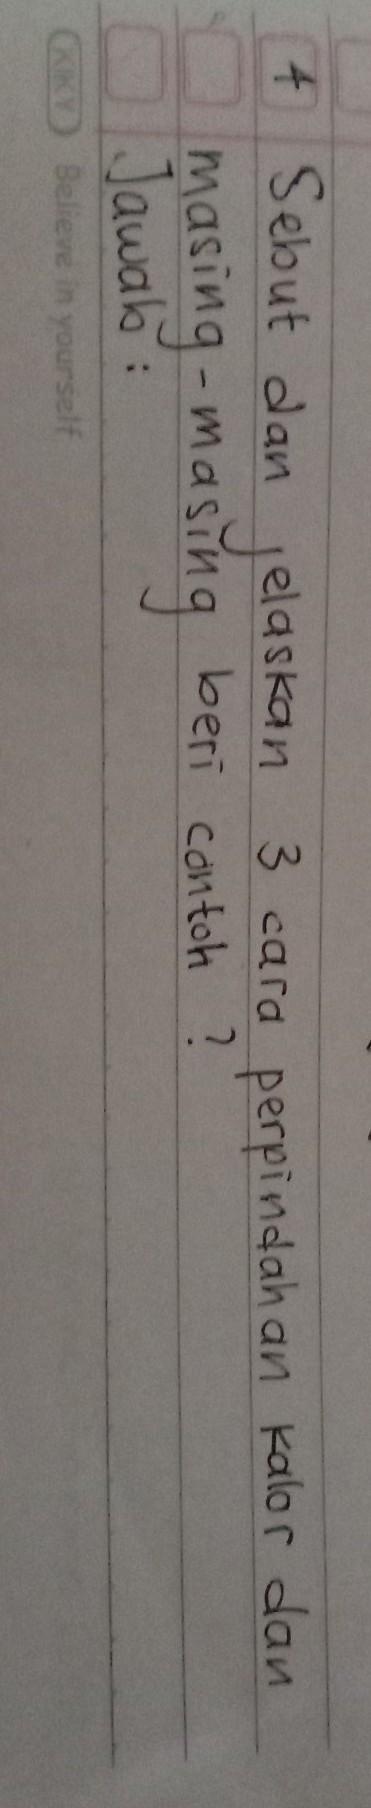 4 Sebut dan jelaskan 3 cara perpindahan kalor dan
masing-masing beri contoh ?
Jawab :
KIKY Believe in yourself